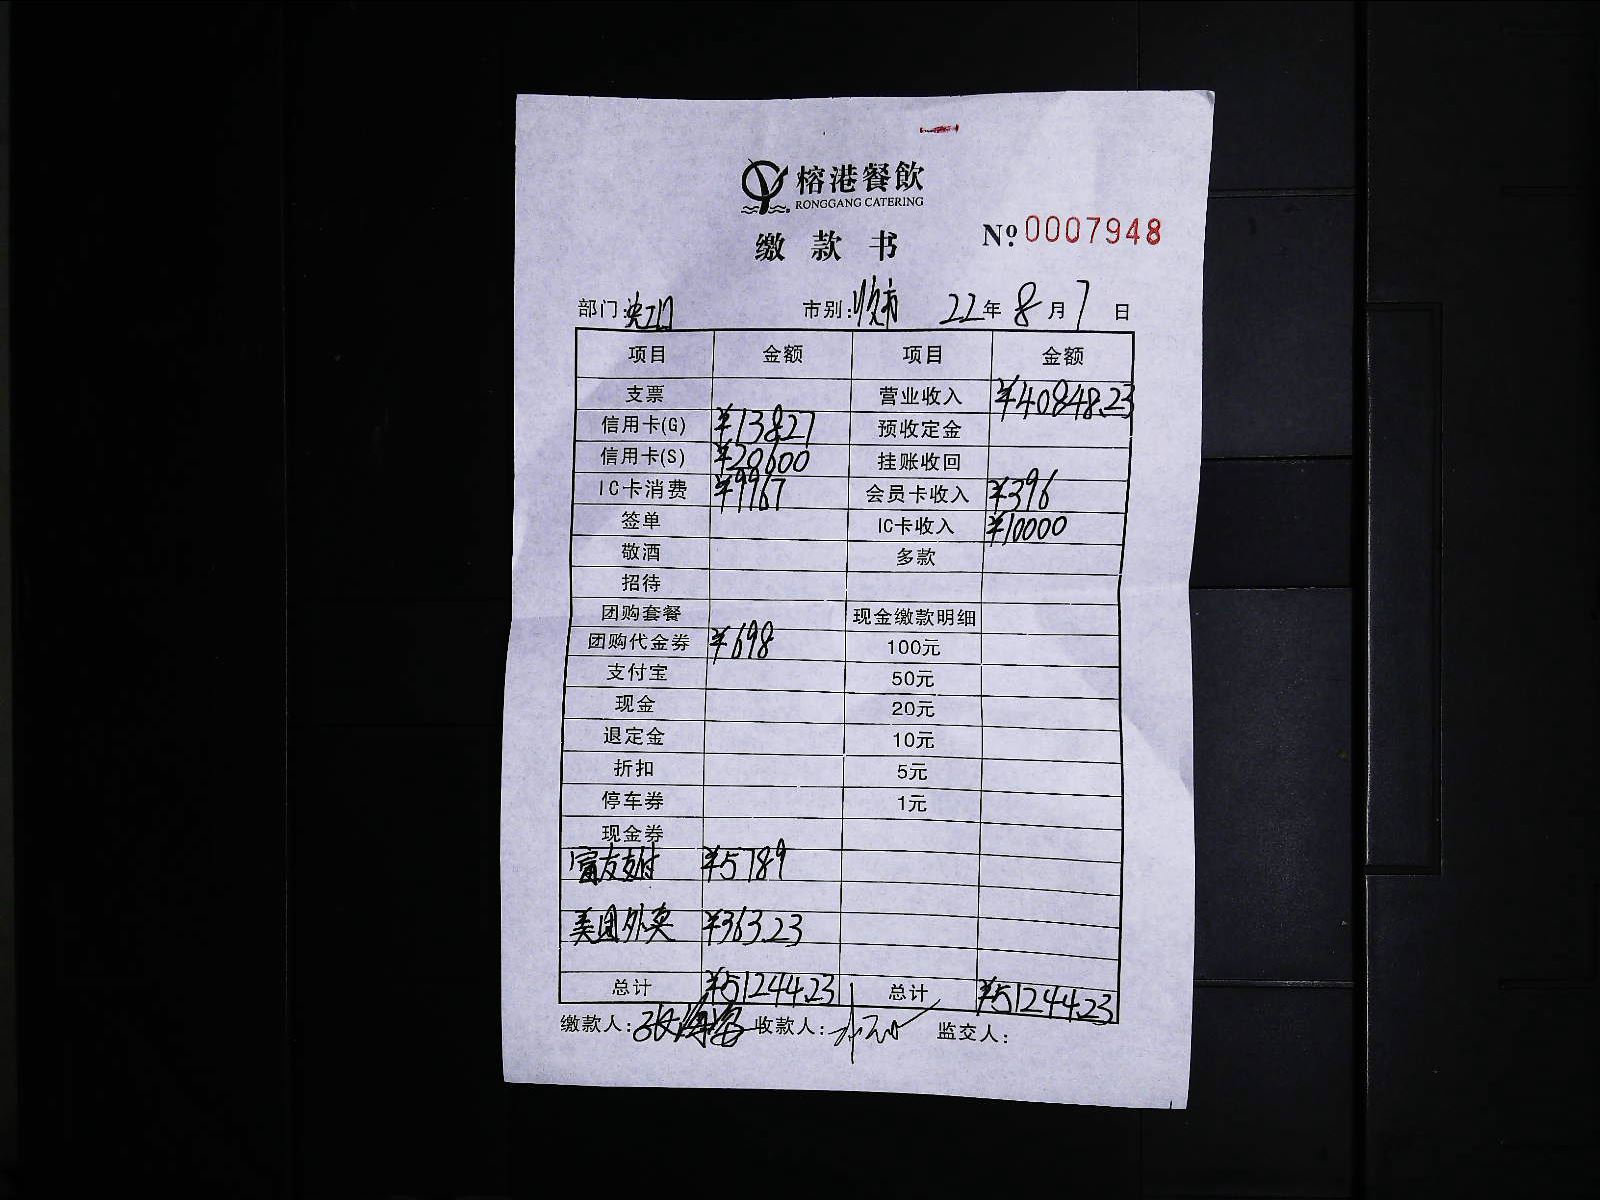 榕港餐飲
RONGGANG CATERING
缴款书
№ 0007948
部门: 市别: 晚市 22年8月7日
项目 金额 项目 金额
支票 营业收入 ¥40848.23
信用卡(G) ¥13827 预收定金
信用卡(S) ¥20600 挂账收回
IC卡消费 ¥9967 会员卡收入 ¥396
签单 IC卡收入 ¥10000
敬酒 多款
招待
团购套餐 现金缴款明细
团购代金券 ¥698 100元
支付宝 50元
现金 20元
退定金 10元
折扣 5元
停车券 1元
现金券
富友支付 ¥5789
美团外卖 ¥363.23
总计 ¥51244.23 总计 ¥51244.23
缴款人: 张海海 收款人: 监交人: